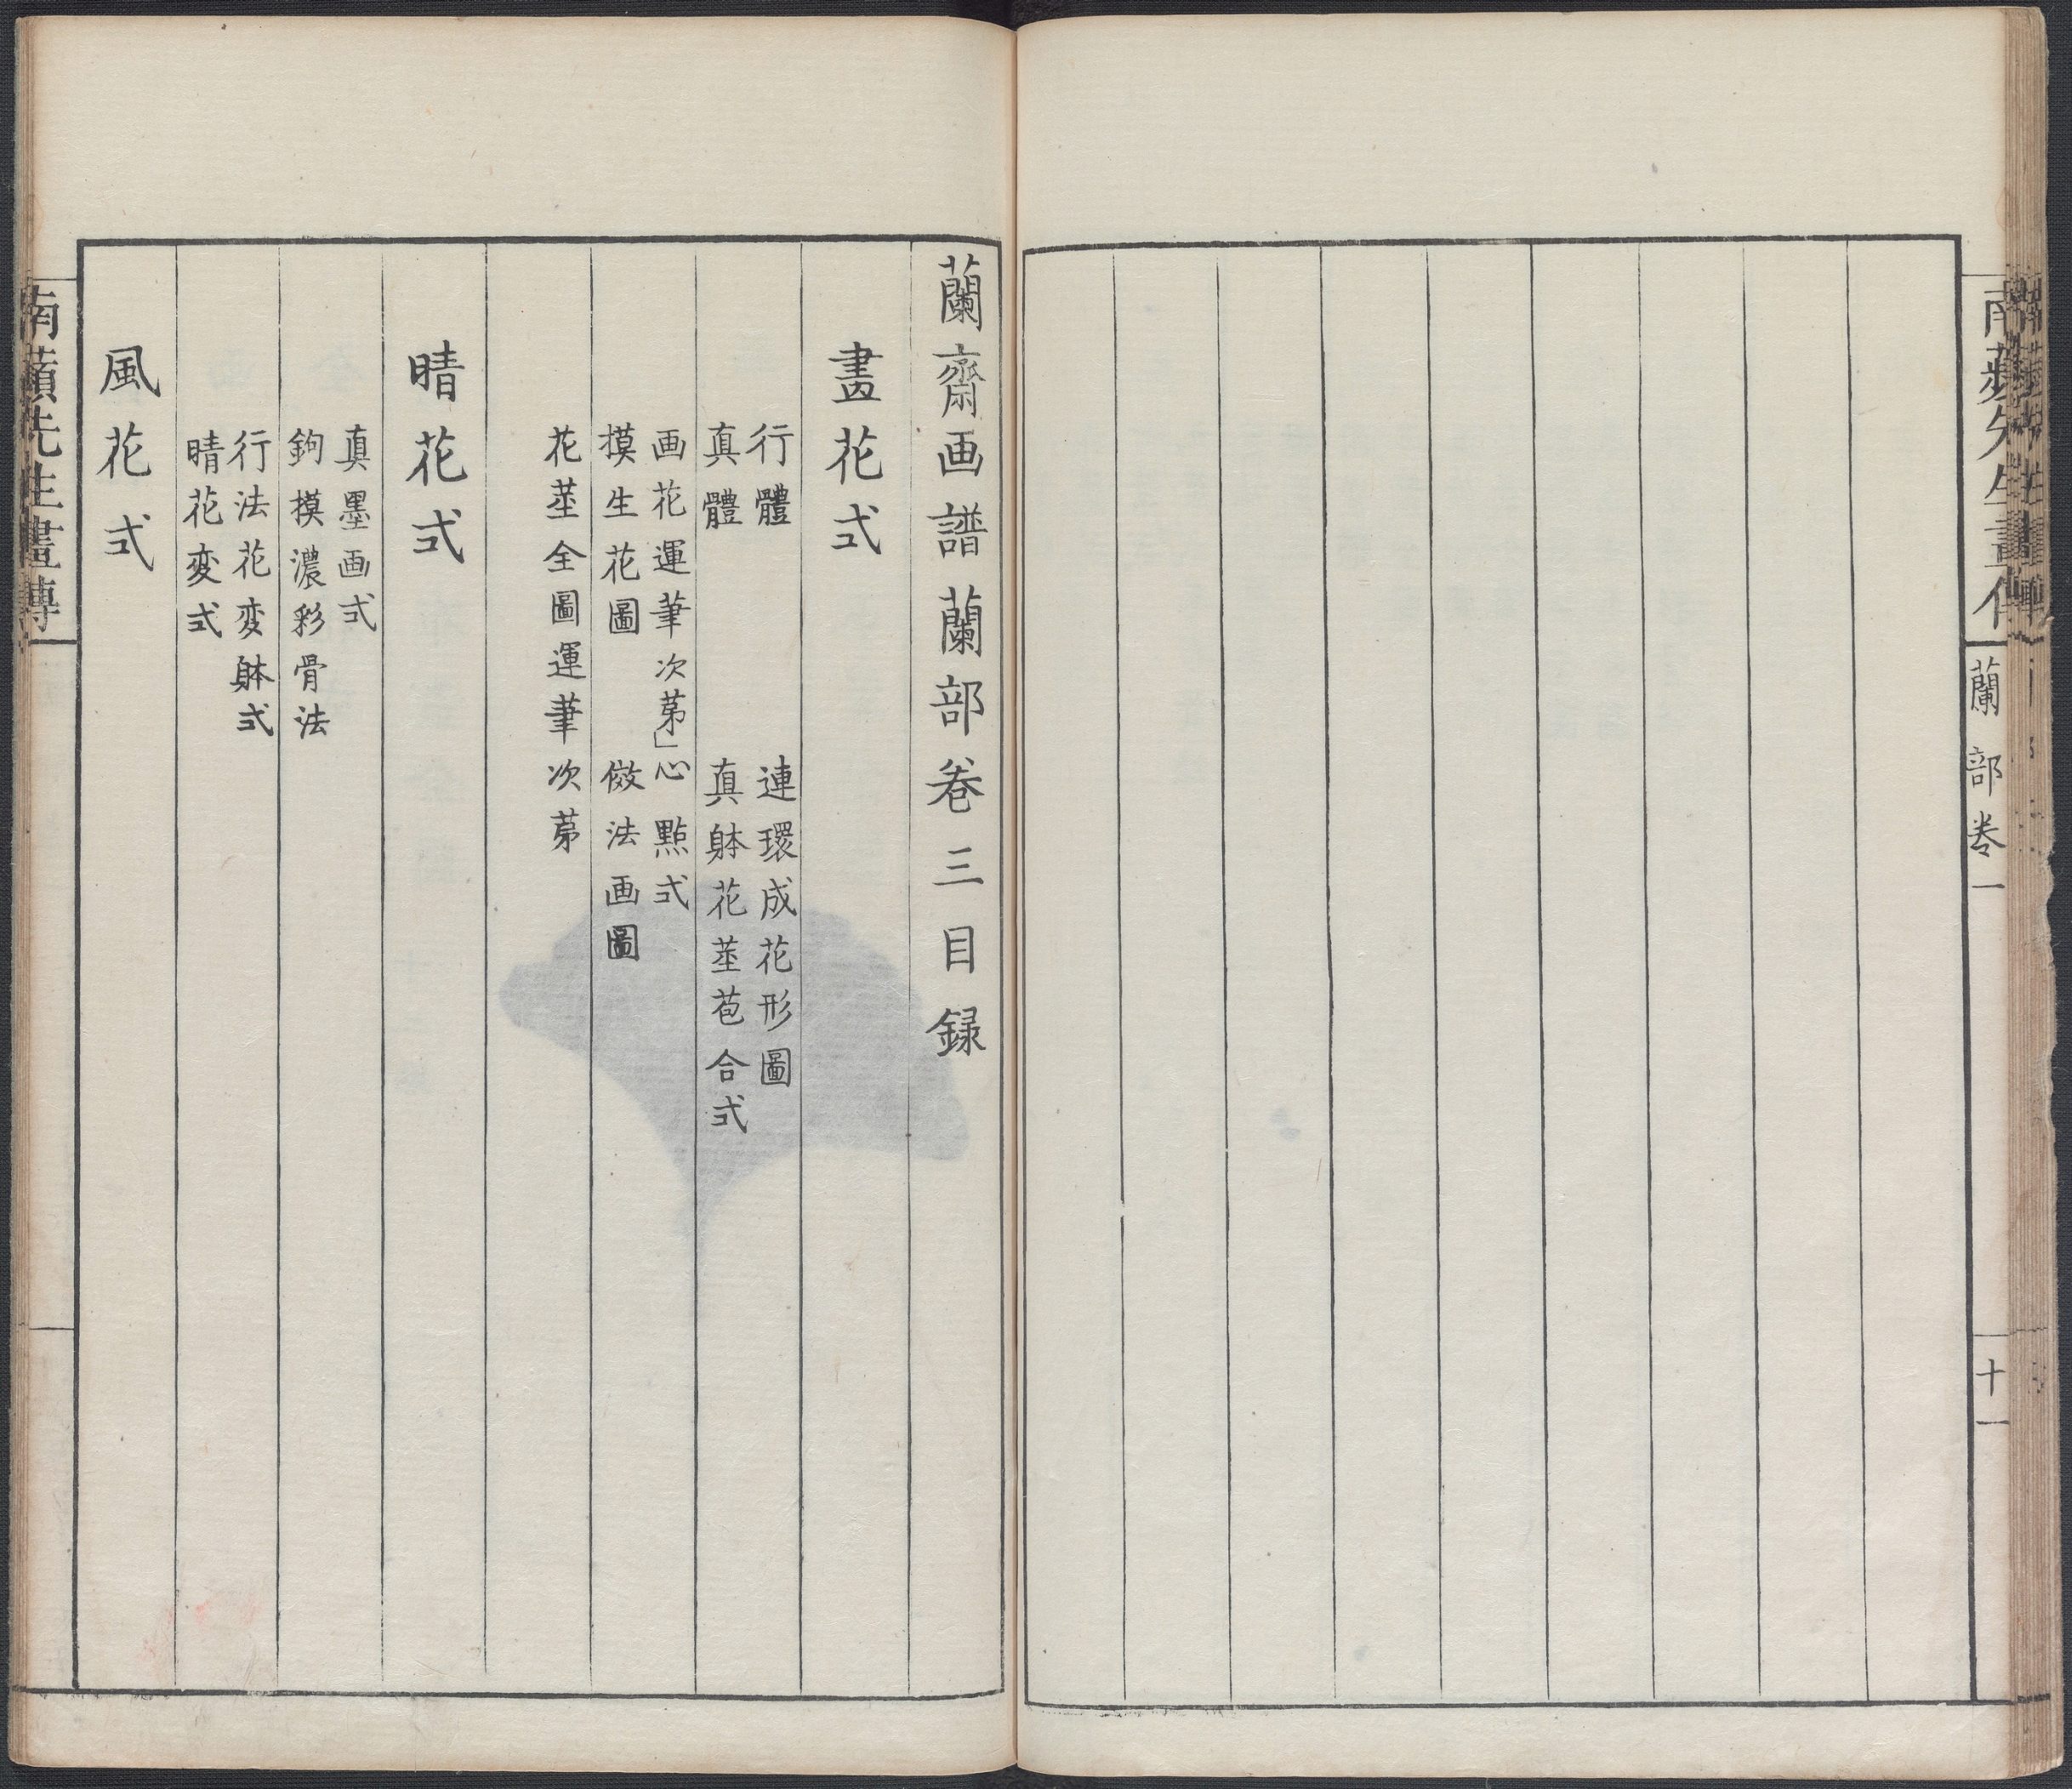 蘭部卷一
十一
蘭齋画譜蘭部卷三目録
畫花式
行體
連環成花形圖
真體
真躰花莖苞合式
画花運筆次苐」心點式
摸生花圖
倣法画圖
花莖全圖運筆次苐
晴花式
真墨画式
鉤摸濃彩骨法
行法花変躰式
晴花変式
風花式
南蘋先生畫傳